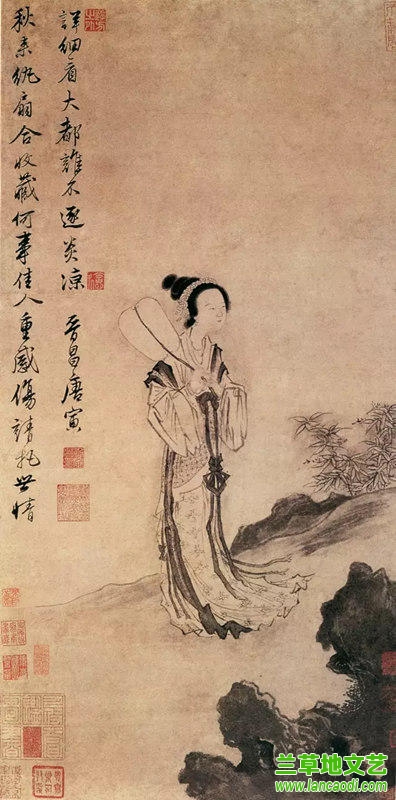 秋来纨扇合收藏何事佳人重感傷請托世情
詳細看大都誰不逐炎凉 晉昌唐寅
兰草地文艺
www.lancaodi.com